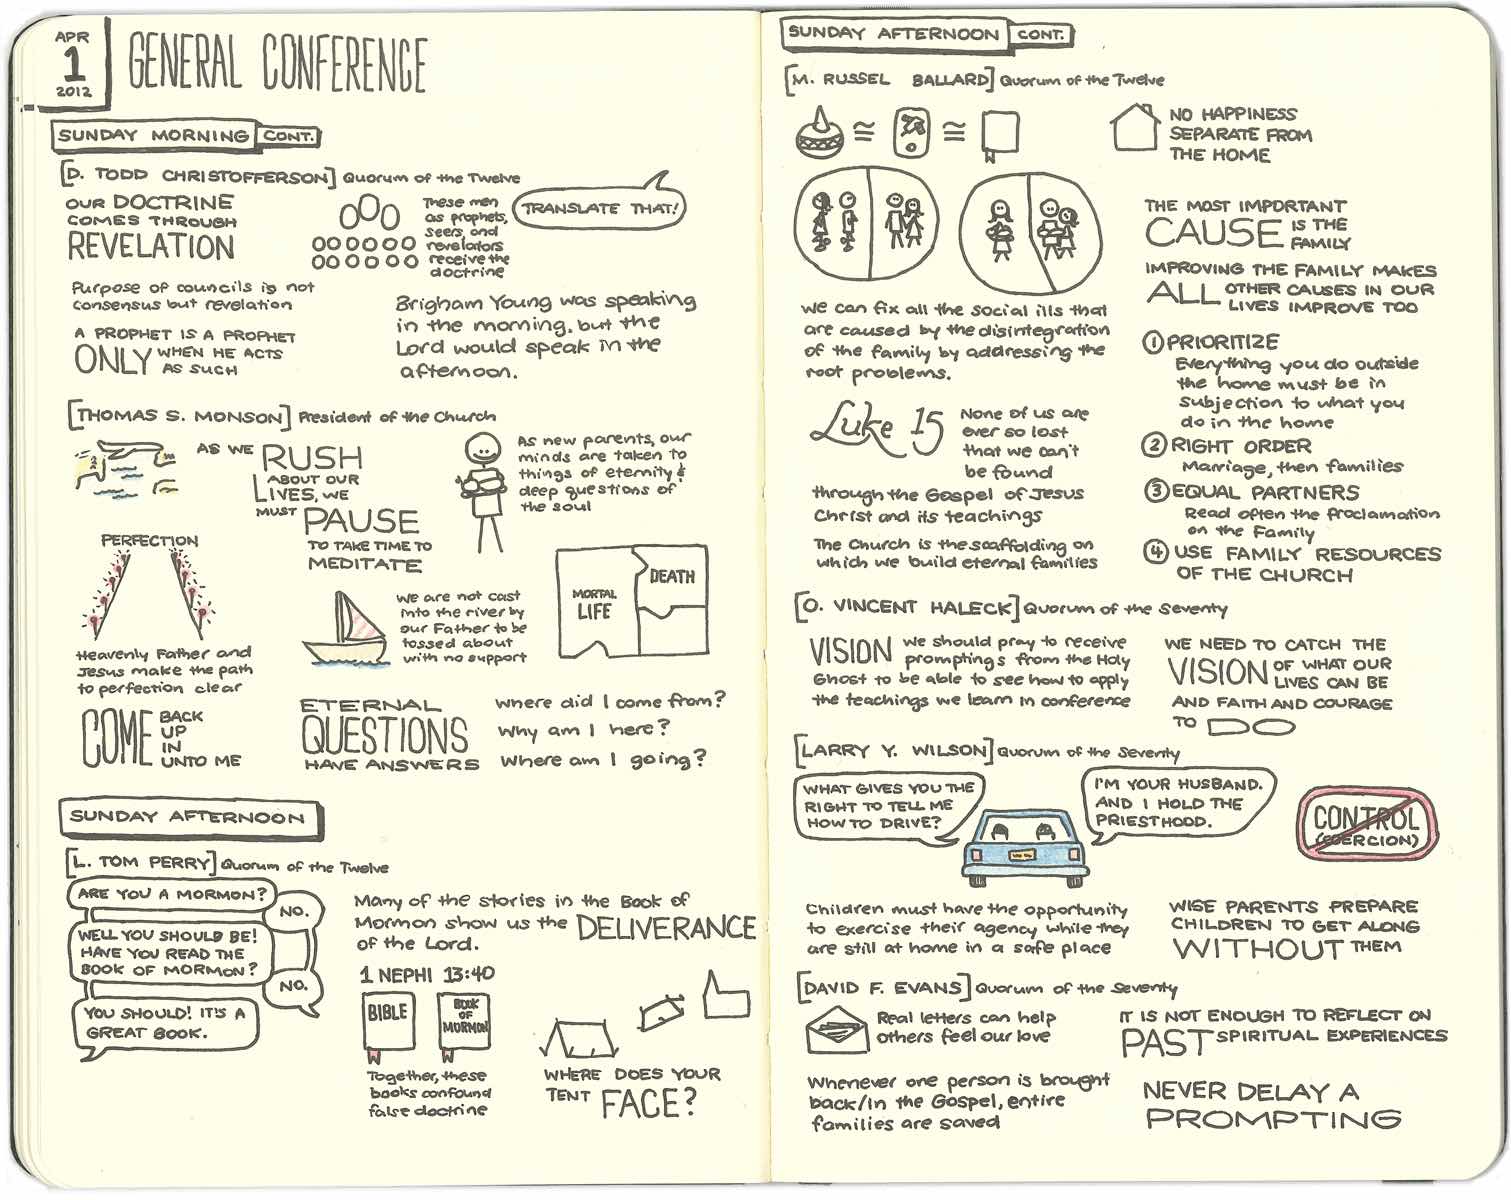 APR
1
2012
GENERAL CONFERENCE
SUNDAY MORNING CONT.
[D. TODD CHRISTOFFERSON] Quorum of the Twelve
OUR DOCTRINE
COMES THROUGH
REVELATION
These men
as prophets,
seers, and
revelators
receive the
doctrine
TRANSLATE THAT!
Purpose of councils is not
consensus but revelation
A PROPHET IS A PROPHET
ONLY WHEN HE ACTS
AS SUCH
Brigham Young was speaking
in the morning, but the
Lord would speak in the
afternoon.
[THOMAS S. MONSON] President of the Church
AS WE RUSH
ABOUT OUR
LIVES, WE
MUST PAUSE
TO TAKE TIME TO
MEDITATE
As new parents, our
minds are taken to
things of eternity &
deep questions of
the soul
PERFECTION
Heavenly Father and
Jesus make the path
to perfection clear
We are not cast
into the river by
our Father to be
tossed about
with no support
MORTAL
LIFE
DEATH
COME BACK
UP
IN
UNTO ME
ETERNAL
QUESTIONS
HAVE ANSWERS
Where did I come from?
Why am I here?
Where am I going?
SUNDAY AFTERNOON
[L. TOM PERRY] Quorum of the Twelve
ARE YOU A MORMON?
NO.
WELL YOU SHOULD BE!
HAVE YOU READ THE
BOOK OF MORMON?
NO.
YOU SHOULD! IT'S A
GREAT BOOK.
Many of the stories in the Book of
Mormon show us the DELIVERANCE
of the Lord.
1 NEPHI 13:40
BIBLE
BOOK
OF
MORMON
Together, these
books confound
false doctrine
WHERE DOES YOUR
TENT FACE?
SUNDAY AFTERNOON CONT.
[M. RUSSEL BALLARD] Quorum of the Twelve
≅ ≅
NO HAPPINESS
SEPARATE FROM
THE HOME
THE MOST IMPORTANT
CAUSE IS THE
FAMILY
IMPROVING THE FAMILY MAKES
ALL OTHER CAUSES IN OUR
LIVES IMPROVE TOO
We can fix all the social ills that
are caused by the disintegration
of the family by addressing the
root problems.
Luke 15
None of us are
ever so lost
that we can't
be found
through the Gospel of Jesus
Christ and its teachings
The Church is the scaffolding on
which we build eternal families
1 PRIORITIZE
Everything you do outside
the home must be in
subjection to what you
do in the home
2 RIGHT ORDER
Marriage, then families
3 EQUAL PARTNERS
Read often the Proclamation
on the Family
4 USE FAMILY RESOURCES
OF THE CHURCH
[O. VINCENT HALECK] Quorum of the Seventy
VISION We should pray to receive
promptings from the Holy
Ghost to be able to see how to apply
the teachings we learn in conference
WE NEED TO CATCH THE
VISION OF WHAT OUR
LIVES CAN BE
AND FAITH AND COURAGE
TO DO
[LARRY Y. WILSON] Quorum of the Seventy
WHAT GIVES YOU THE
RIGHT TO TELL ME
HOW TO DRIVE?
I'M YOUR HUSBAND.
AND I HOLD THE
PRIESTHOOD.
CONTROL
(COERCION)
Children must have the opportunity
to exercise their agency while they
are still at home in a safe place
WISE PARENTS PREPARE
CHILDREN TO GET ALONG
WITHOUT THEM
[DAVID F. EVANS] Quorum of the Seventy
Real letters can help
others feel our love
IT IS NOT ENOUGH TO REFLECT ON
PAST SPIRITUAL EXPERIENCES
Whenever one person is brought
back/in the Gospel, entire
families are saved
NEVER DELAY A
PROMPTING